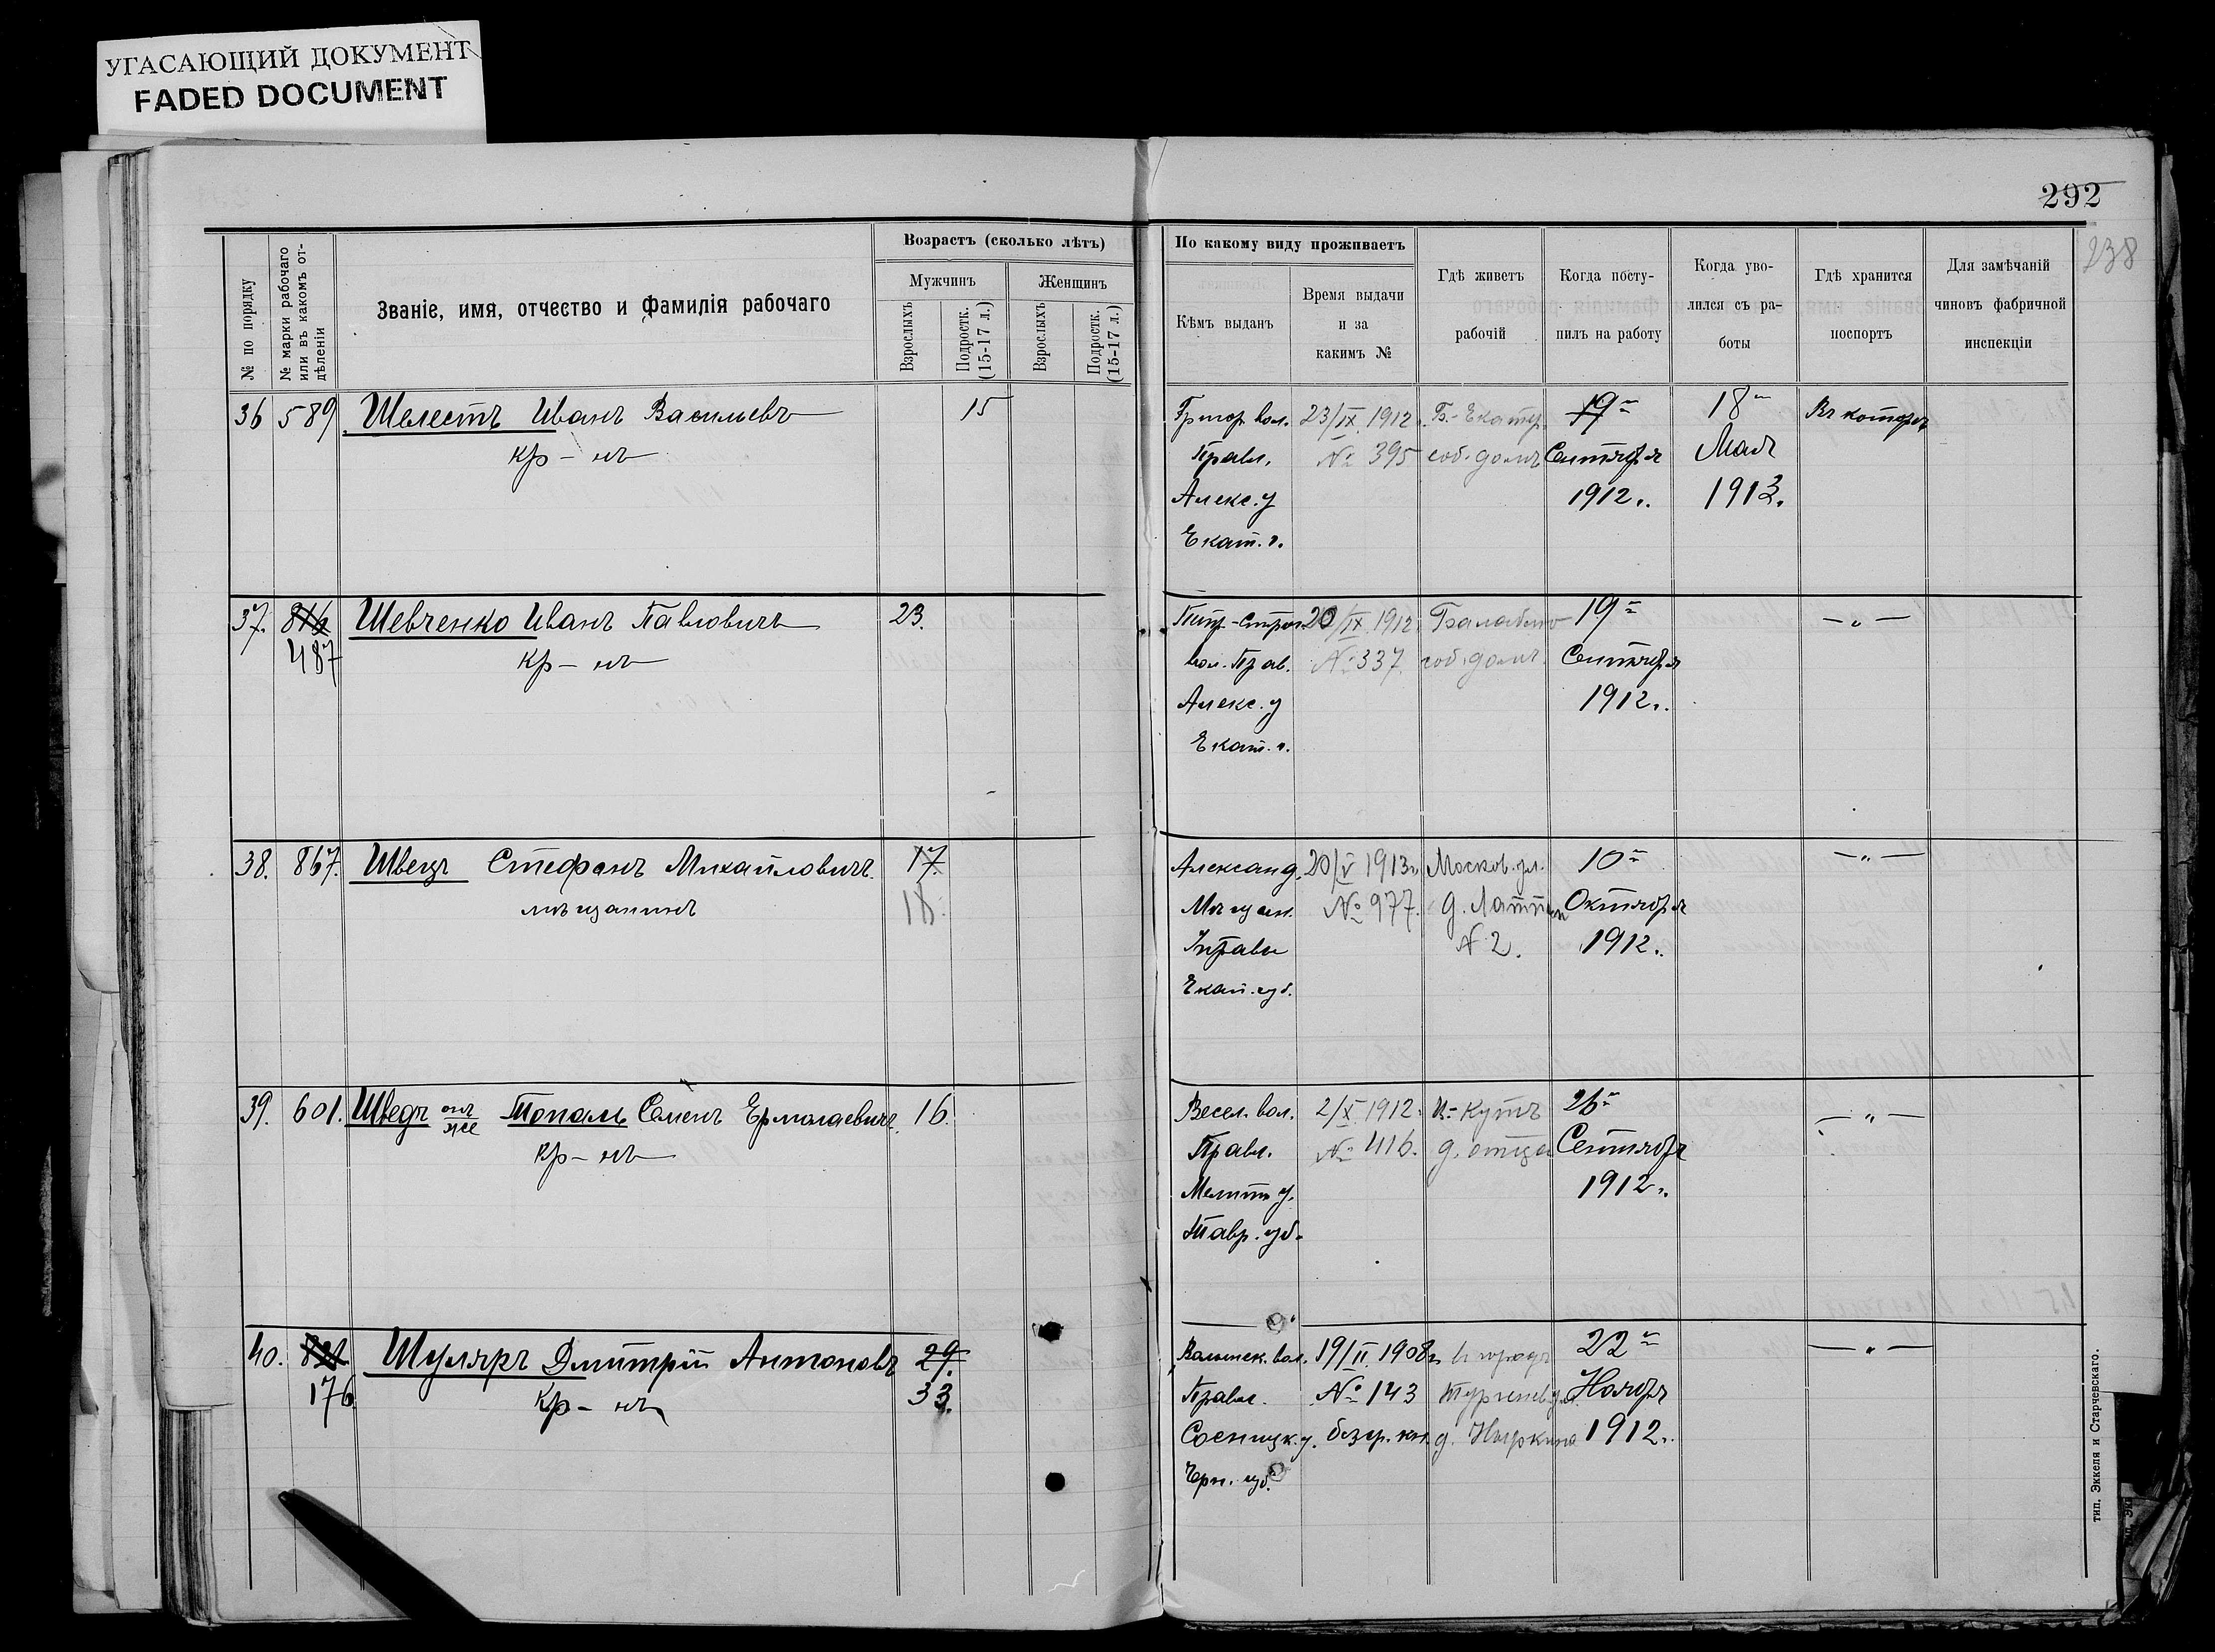 УГАСАЮЩИЙ ДОКУМЕНТ
FADED DOCUMENT
292
238
№ по порядку
№ марки рабочаго
или въ какомъ от-
дѣленіи
Званіе, имя, отчество и фамилія рабочаго
Возрастъ (сколько лѣтъ)
Мужчинъ
Женщинъ
Взрослыхъ
Подростк.
(15-17 л.)
Взрослыхъ
Подростк.
(15-17 л.)
По какому виду проживаетъ
Кѣмъ выданъ
Время выдачи
и за
какимъ №
Гдѣ живетъ
рабочій
Когда посту-
пилъ на работу
Когда уво-
лился съ ра-
боты
Гдѣ хранится
поспортъ
Для замѣчаній
чиновъ фабричной
инспекціи
36 589 Шелестъ Иванъ Васильевъ 15 Григор. вол. 23/IX 1912 Б.-Екатер. 19 18 Въ конторѣ
кр-нъ Правл. № 395 соб. домъ Сентября Мая
Алекс. у 1912. 1913.
Екат. г.
37. 816 Шевченко Иванъ Павловичъ 23. 20/IX 1912 Балабино 19 — " —
487 кр-нъ вол. Прав. № 337. соб. домъ. Сентября
Алекс. у 1912.
Екат. г.
38. 867. Швецъ Стефанъ Михайловичъ 17. Александ. 20/V 1913 Москов. ул. 10 — " —
мѣщанинъ 18. Мѣщан. № 977. Октября
Управы № 2. 1912.
Екат. губ.
39. 601. Шведъ онъ же Тополь Семенъ Ермолаевичъ 16. Весел. вол. 2/X 1912. Кутъ 26 — " —
кр-нъ Правл. № 416. д. отца Сентября
Мелит. у. 1912.
Тавр. губ.
40. 821 Шуляръ Дмитрій Антоновъ 29. Волынск. вол. 19/II 1908 22 — " —
176 кр-нъ 33. Правл. № 143 Тургенев. ул. Ноября
Сосницк. у. безср. кн. д. 1912.
Черн. губ.
тип. Эккеля и Старчевскаго.